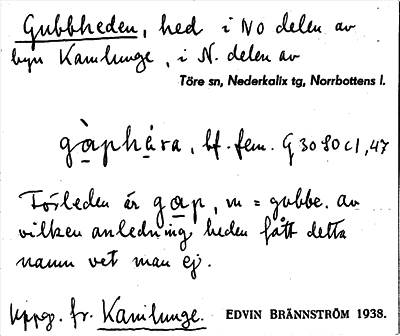 Gubbheden, hed i NO delen av
byn Kamlunge, i N. delen av
Töre sn, Nederkalix tg, Norrbottens l.
gàphéra, bf. fem. G 30 80 c1, 47
Förleden är gap, m = gubbe. av
vilken anledning heden fått detta
namn vet man ej.
Uppg. fr. Kamlunge. EDVIN BRÄNNSTRÖM 1938.